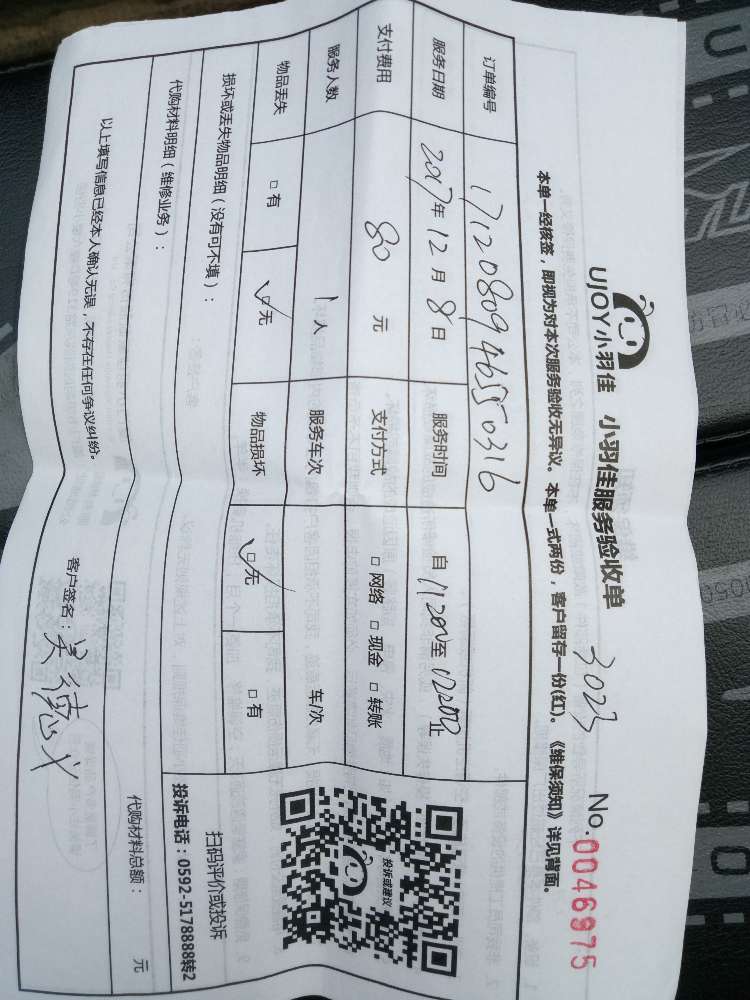 UJOY小羽佳 小羽佳服务验收单 3023 No.0046975
本单一经核签，即视为对本次服务验收无异议。本单一式两份，客户留存一份(红)。《维保须知》详见背面。
订单编号
服务日期 2017年 12月 8日 服务时间 自 至 止
支付费用 80 元 支付方式 □网络 □现金 □转账
服务人数 1人 服务车次 车/次
物品丢失 □有 ☑无 物品损坏 ☑无 □有
损坏或丢失物品明细（没有可不填）：
代购材料明细（维修业务）：
代购材料总额： 元
以上填写信息已经本人确认无误，不存在任何争议纠纷。
客户签名：吴德义
投诉或建议
扫码评价或投诉
投诉电话：0592-5178888转2